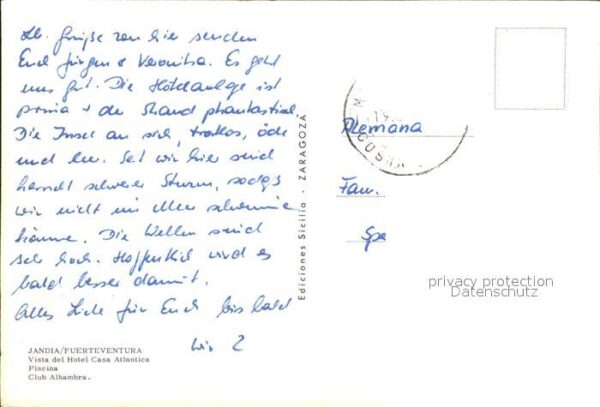 Lb. Grüße von hier senden
Euch Jürgen & Veronika. Es geht
uns gut. Die Hotelanlage ist
prima + der Strand phantastisch.
Die Insel an sich, trostlos, öde
und leer. Seit wir hier sind
herrscht schwerer Sturm, sodaß
wir nicht im Meer schwimmen
können. Die Wellen sind
sehr hoch. Hoffentlich wird es
bald besser damit.
Alles Liebe für Euch bis bald
wir 2
JANDIA/FUERTEVENTURA
Vista del Hotel Casa Atlantica
Piscina
Club Alhambra.
Ediciones Sicilia - ZARAGOZA
Alemana
Fam.
privacy protection
Datenschutz